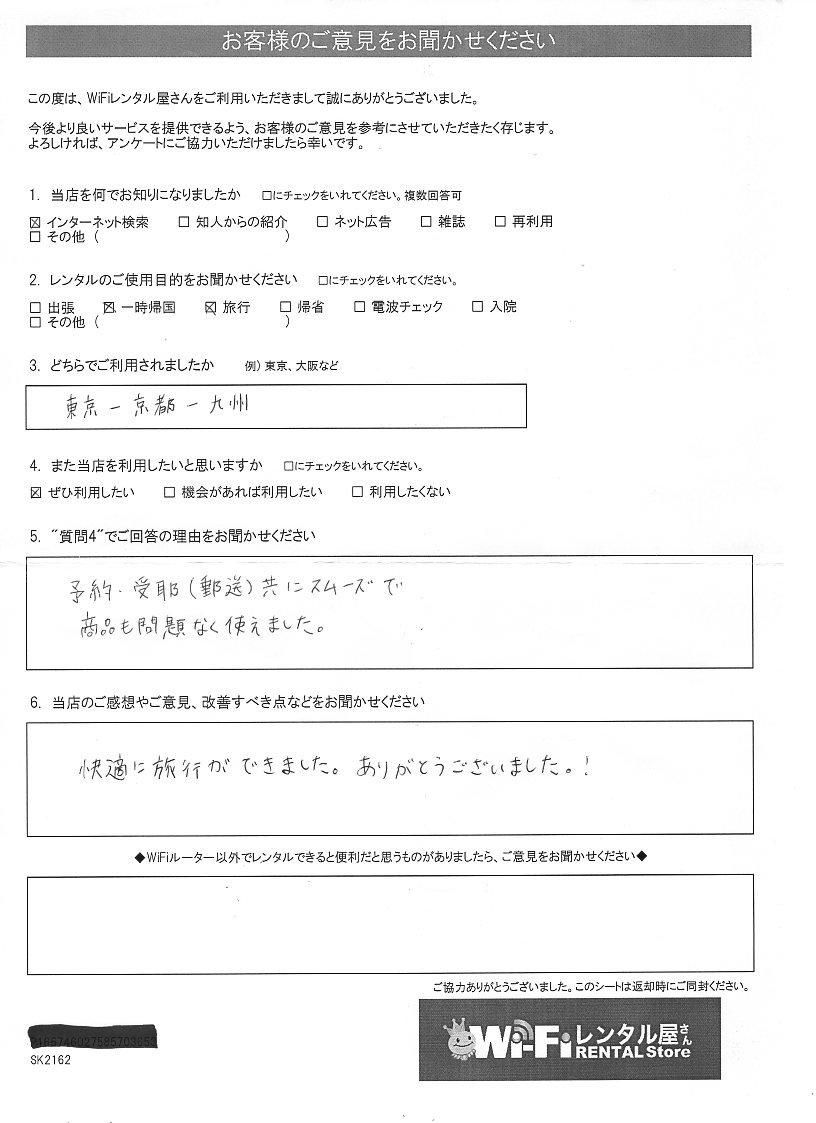 お客様のご意見をお聞かせください
この度は、WiFiレンタル屋さんをご利用いただきまして誠にありがとうございました。
今後より良いサービスを提供できるよう、お客様のご意見を参考にさせていただきたく存じます。
よろしければ、アンケートにご協力いただけましたら幸いです。
1. 当店を何でお知りになりましたか □にチェックをいれてください。複数回答可
☒ インターネット検索 □ 知人からの紹介 □ ネット広告 □ 雑誌 □ 再利用
□ その他 ( )
2. レンタルのご使用目的をお聞かせください □にチェックをいれてください。
□ 出張 ☒ 一時帰国 ☒ 旅行 □ 帰省 □ 電波チェック □ 入院
□ その他 ( )
3. どちらでご利用されましたか 例) 東京、大阪など
東京 - 京都 - 九州
4. また当店を利用したいと思いますか □にチェックをいれてください。
☒ ぜひ利用したい □ 機会があれば利用したい □ 利用したくない
5. "質問4"でご回答の理由をお聞かせください
予約・受取(郵送)共にスムーズで
商品も問題なく使えました。
6. 当店のご感想やご意見、改善すべき点などをお聞かせください
快適に旅行ができました。ありがとうございました。!
◆WiFiルーター以外でレンタルできると便利だと思うものがありましたら、ご意見をお聞かせください◆
ご協力ありがとうございました。このシートは返却時にご同封ください。
SK2162
Wi-Fiレンタル屋さん
RENTAL Store